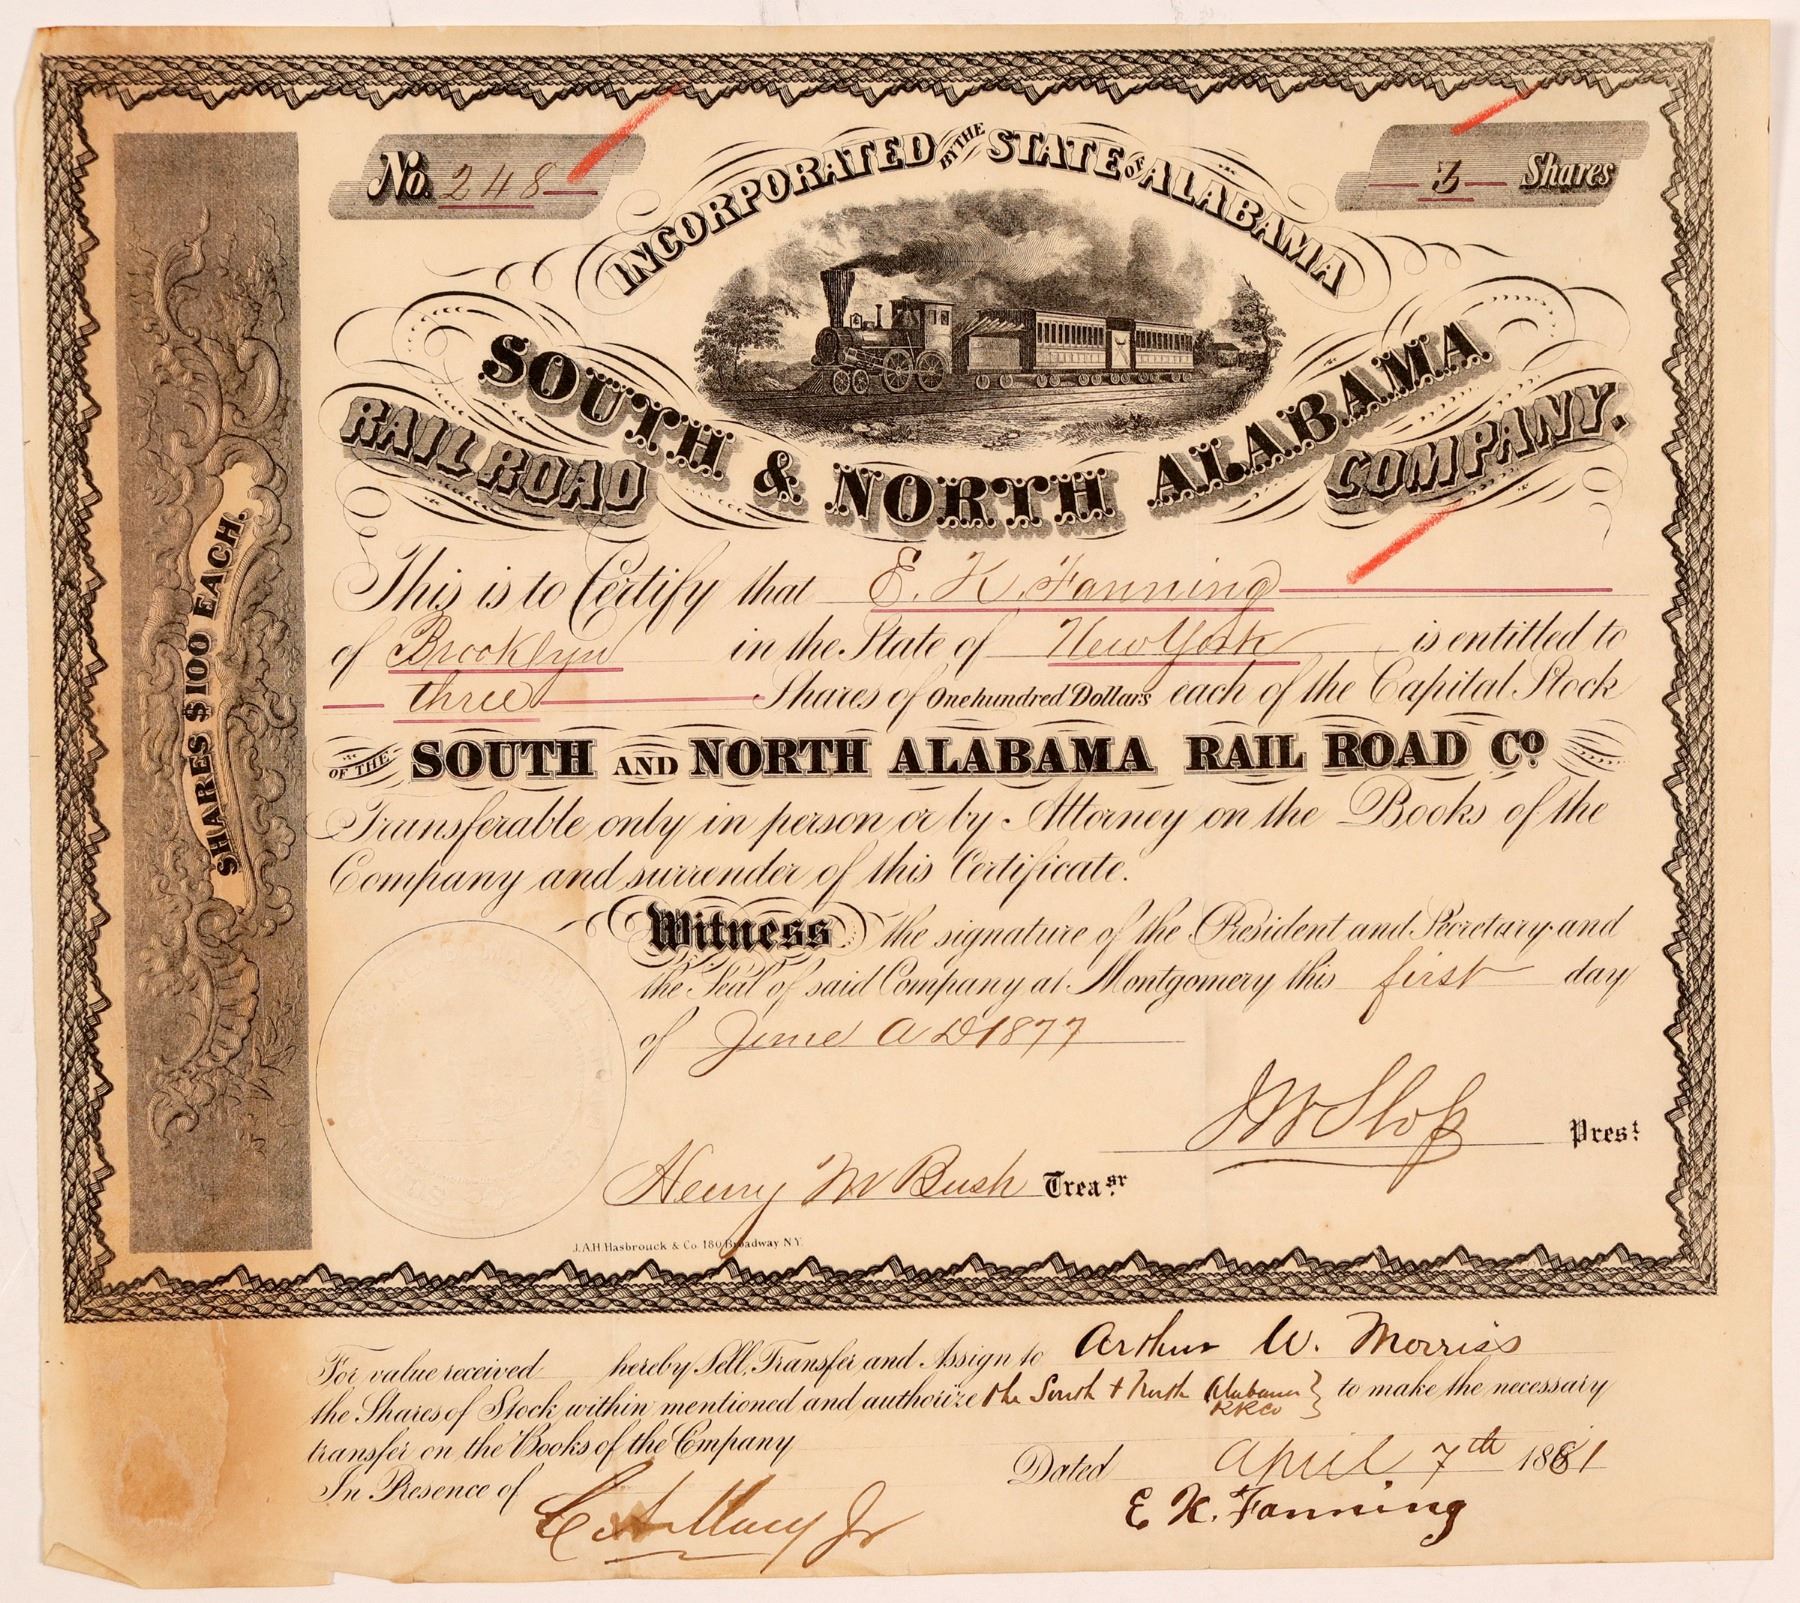 No. 248
3 Shares
INCORPORATED BY THE STATE OF ALABAMA
SOUTH & NORTH ALABAMA
RAIL ROAD COMPANY.
SHARES $100 EACH.
This is to Certify that E. K. Fanning
of Brooklyn in the State of New York is entitled to
three Shares of One hundred Dollars each of the Capital Stock
OF THE SOUTH AND NORTH ALABAMA RAIL ROAD CO.
Transferable only in person or by Attorney on the Books of the
Company and surrender of this Certificate.
Witness the signature of the President and Secretary and
the Seal of said Company at Montgomery this first day
of June A D 1877
Prest
Henry M Bush Treasr
J.A.H Hasbrouck & Co. 180 Broadway N.Y.
For value received hereby Sell, Transfer and Assign to Arthur W. Morriss
the Shares of Stock within mentioned and authorize the South & North Alabama RR Co to make the necessary
transfer on the Books of the Company
Dated April 7th 1881
In Presence of
E K. Fanning